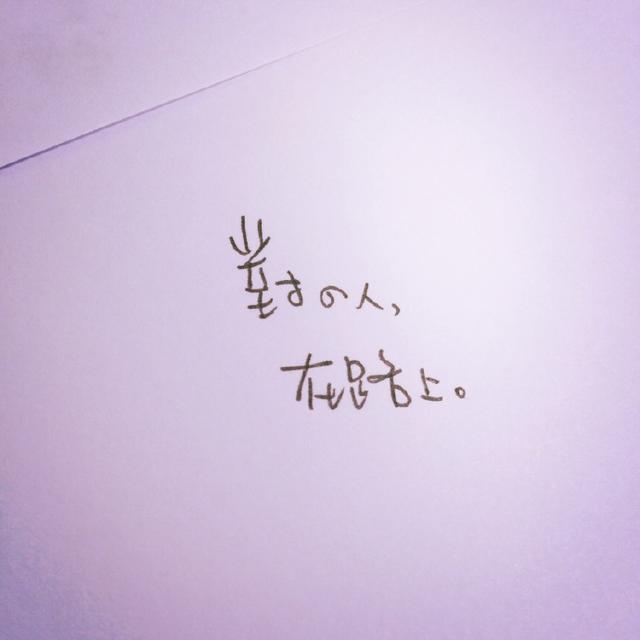 對的人,
在路上。